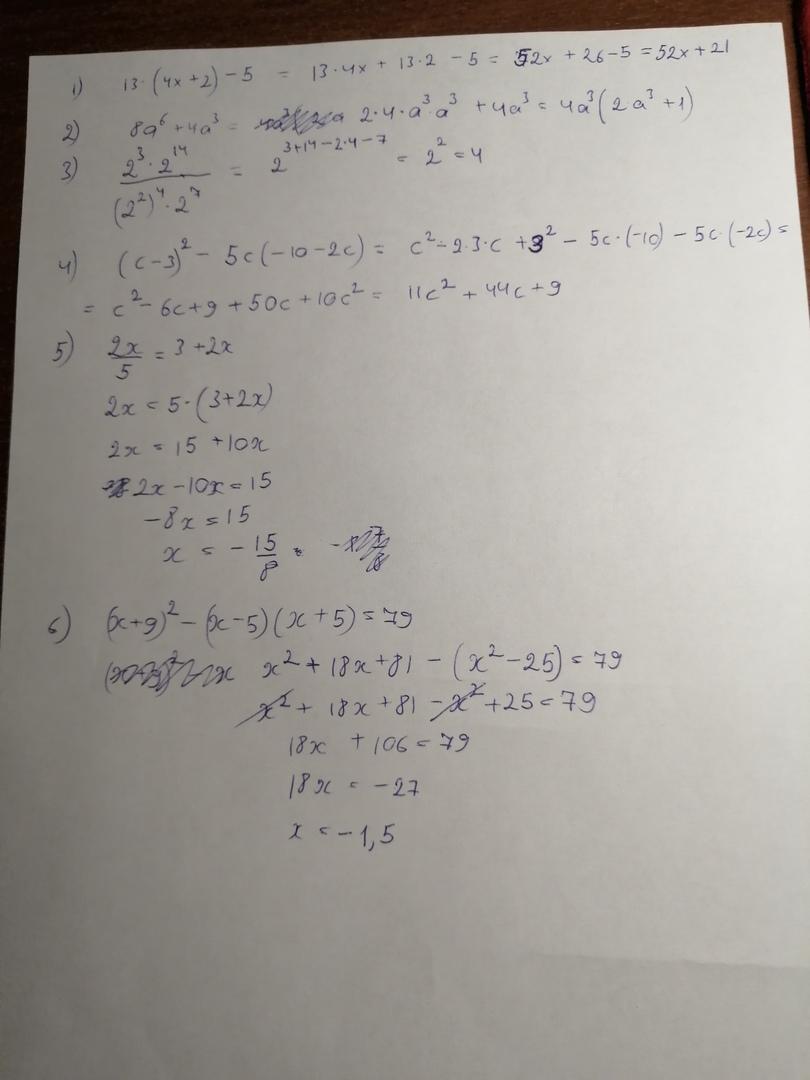 1) 13·(4x+2)-5 = 13·4x + 13·2 - 5 = 52x + 26-5 = 52x+21
2) 8a⁶+4a³ = 2·4·a³·a³ + 4a³ = 4a³(2a³+1)
3) (2³·2¹⁴)/((2²)⁴·2⁷) = 2^(3+14-2·4-7) = 2² = 4
4) (c-3)² - 5c(-10-2c) = c²-2·3·c+3² - 5c·(-10) - 5c·(-2c) =
= c²-6c+9+50c+10c² = 11c²+44c+9
5) 2x/5 = 3+2x
2x = 5·(3+2x)
2x = 15+10x
2x-10x=15
-8x=15
x = -15/8
6) (x+9)²-(x-5)(x+5)=79
x²+18x+81-(x²-25)=79
x²+18x+81-x²+25=79
18x+106=79
18x = -27
x = -1,5